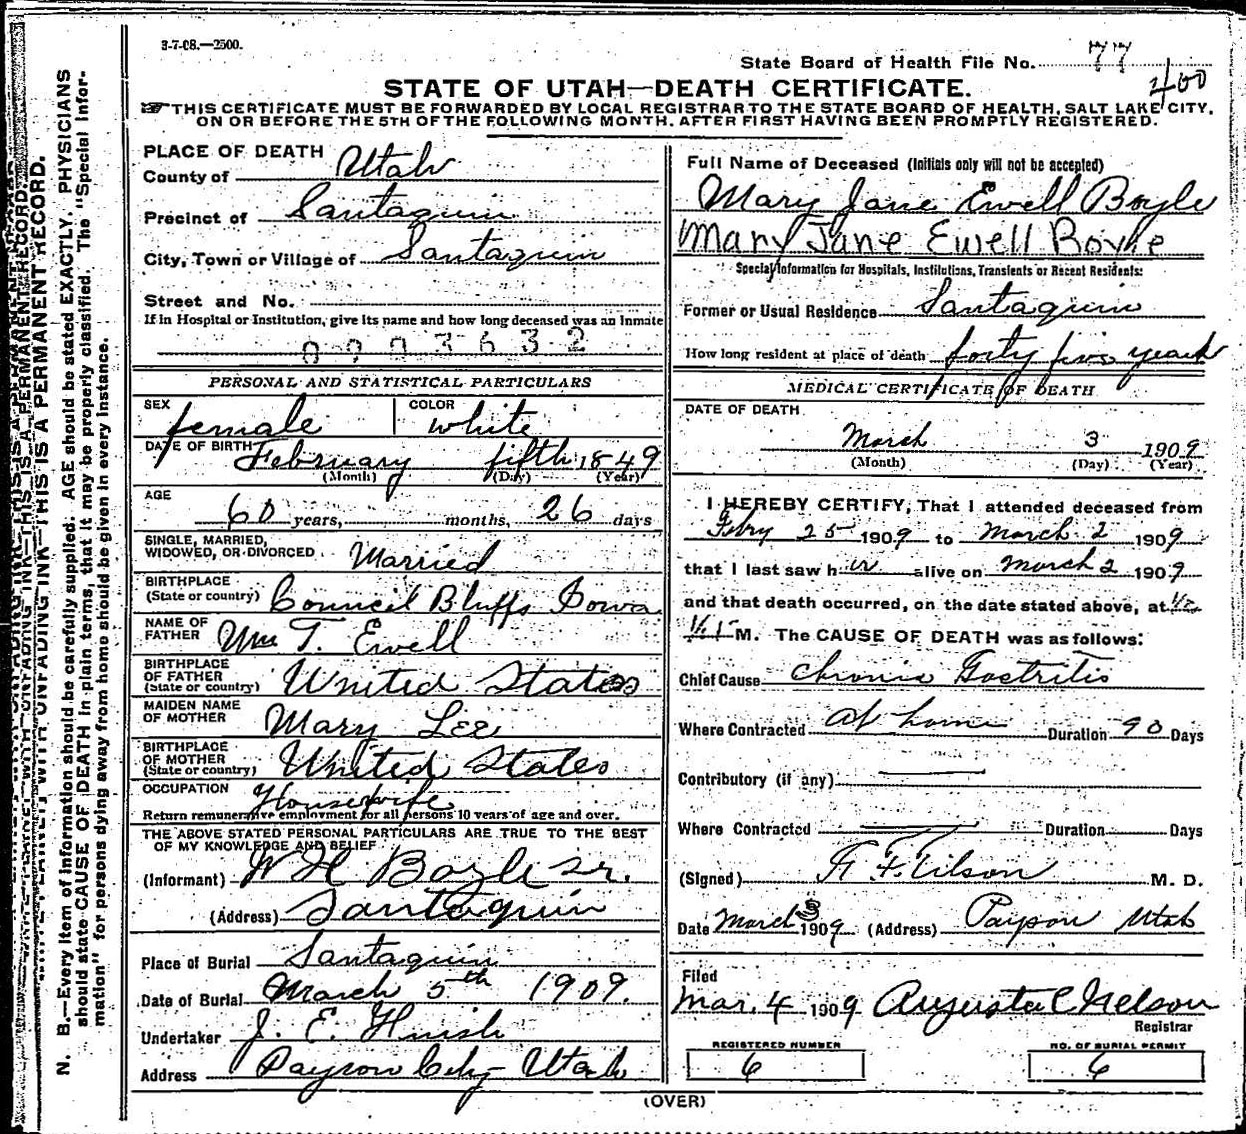 3-7-08.—2500.
State Board of Health File No. 77
400
STATE OF UTAH—DEATH CERTIFICATE.
☞ THIS CERTIFICATE MUST BE FORWARDED BY LOCAL REGISTRAR TO THE STATE BOARD OF HEALTH, SALT LAKE CITY,
ON OR BEFORE THE 5TH OF THE FOLLOWING MONTH, AFTER FIRST HAVING BEEN PROMPTLY REGISTERED.
PLACE OF DEATH
County of Utah
Precinct of Santaquin
City, Town or Village of Santaquin
Street and No.
If in Hospital or Institution, give its name and how long deceased was an inmate
0903632
PERSONAL AND STATISTICAL PARTICULARS
SEX female COLOR white
DATE OF BIRTH February fifth 1849
(Month) (Day) (Year)
AGE 60 years, months, 26 days
SINGLE, MARRIED,
WIDOWED, OR DIVORCED Married
BIRTHPLACE
(State or country) Council Bluffs Iowa
NAME OF
FATHER Wm T. Ewell
BIRTHPLACE
OF FATHER
(State or country) United States
MAIDEN NAME
OF MOTHER Mary Lee
BIRTHPLACE
OF MOTHER
(State or country) United States
OCCUPATION Housewife
Return remunerative employment for all persons 10 years of age and over.
THE ABOVE STATED PERSONAL PARTICULARS ARE TRUE TO THE BEST
OF MY KNOWLEDGE AND BELIEF
(Informant) W H Boyle Sr.
(Address) Santaquin
Place of Burial Santaquin
Date of Burial March 5th 1909.
Undertaker J. E. Huish
Address Payson City Utah
Full Name of Deceased (Initials only will not be accepted)
Mary Jane Ewell Boyle
Mary Jane Ewell Boyle
Special Information for Hospitals, Institutions, Transients or Recent Residents:
Former or Usual Residence Santaquin
How long resident at place of death forty five years
MEDICAL CERTIFICATE OF DEATH
DATE OF DEATH
March 3 1909
(Month) (Day) (Year)
I HEREBY CERTIFY, That I attended deceased from
Febry 25 1909 to March 2 1909
that I last saw her alive on March 2 1909
and that death occurred, on the date stated above, at
M. The CAUSE OF DEATH was as follows:
Chief Cause Chronic Gastritis
Where Contracted At home Duration 90 Days
Contributory (if any)
Where Contracted Duration Days
(Signed) Tilson M. D.
Date March 3 1909 (Address) Payson Utah
Filed
Mar. 4 1909 Augusta C Nelson
Registrar
REGISTERED NUMBER
6
NO. OF BURIAL PERMIT
6
(OVER)
THIS IS A PERMANENT RECORD.
N. B.—Every item of information should be carefully supplied. AGE should be stated EXACTLY. PHYSICIANS
should state CAUSE OF DEATH in plain terms, that it may be properly classified. The "Special Infor-
mation" for persons dying away from home should be given in every instance.